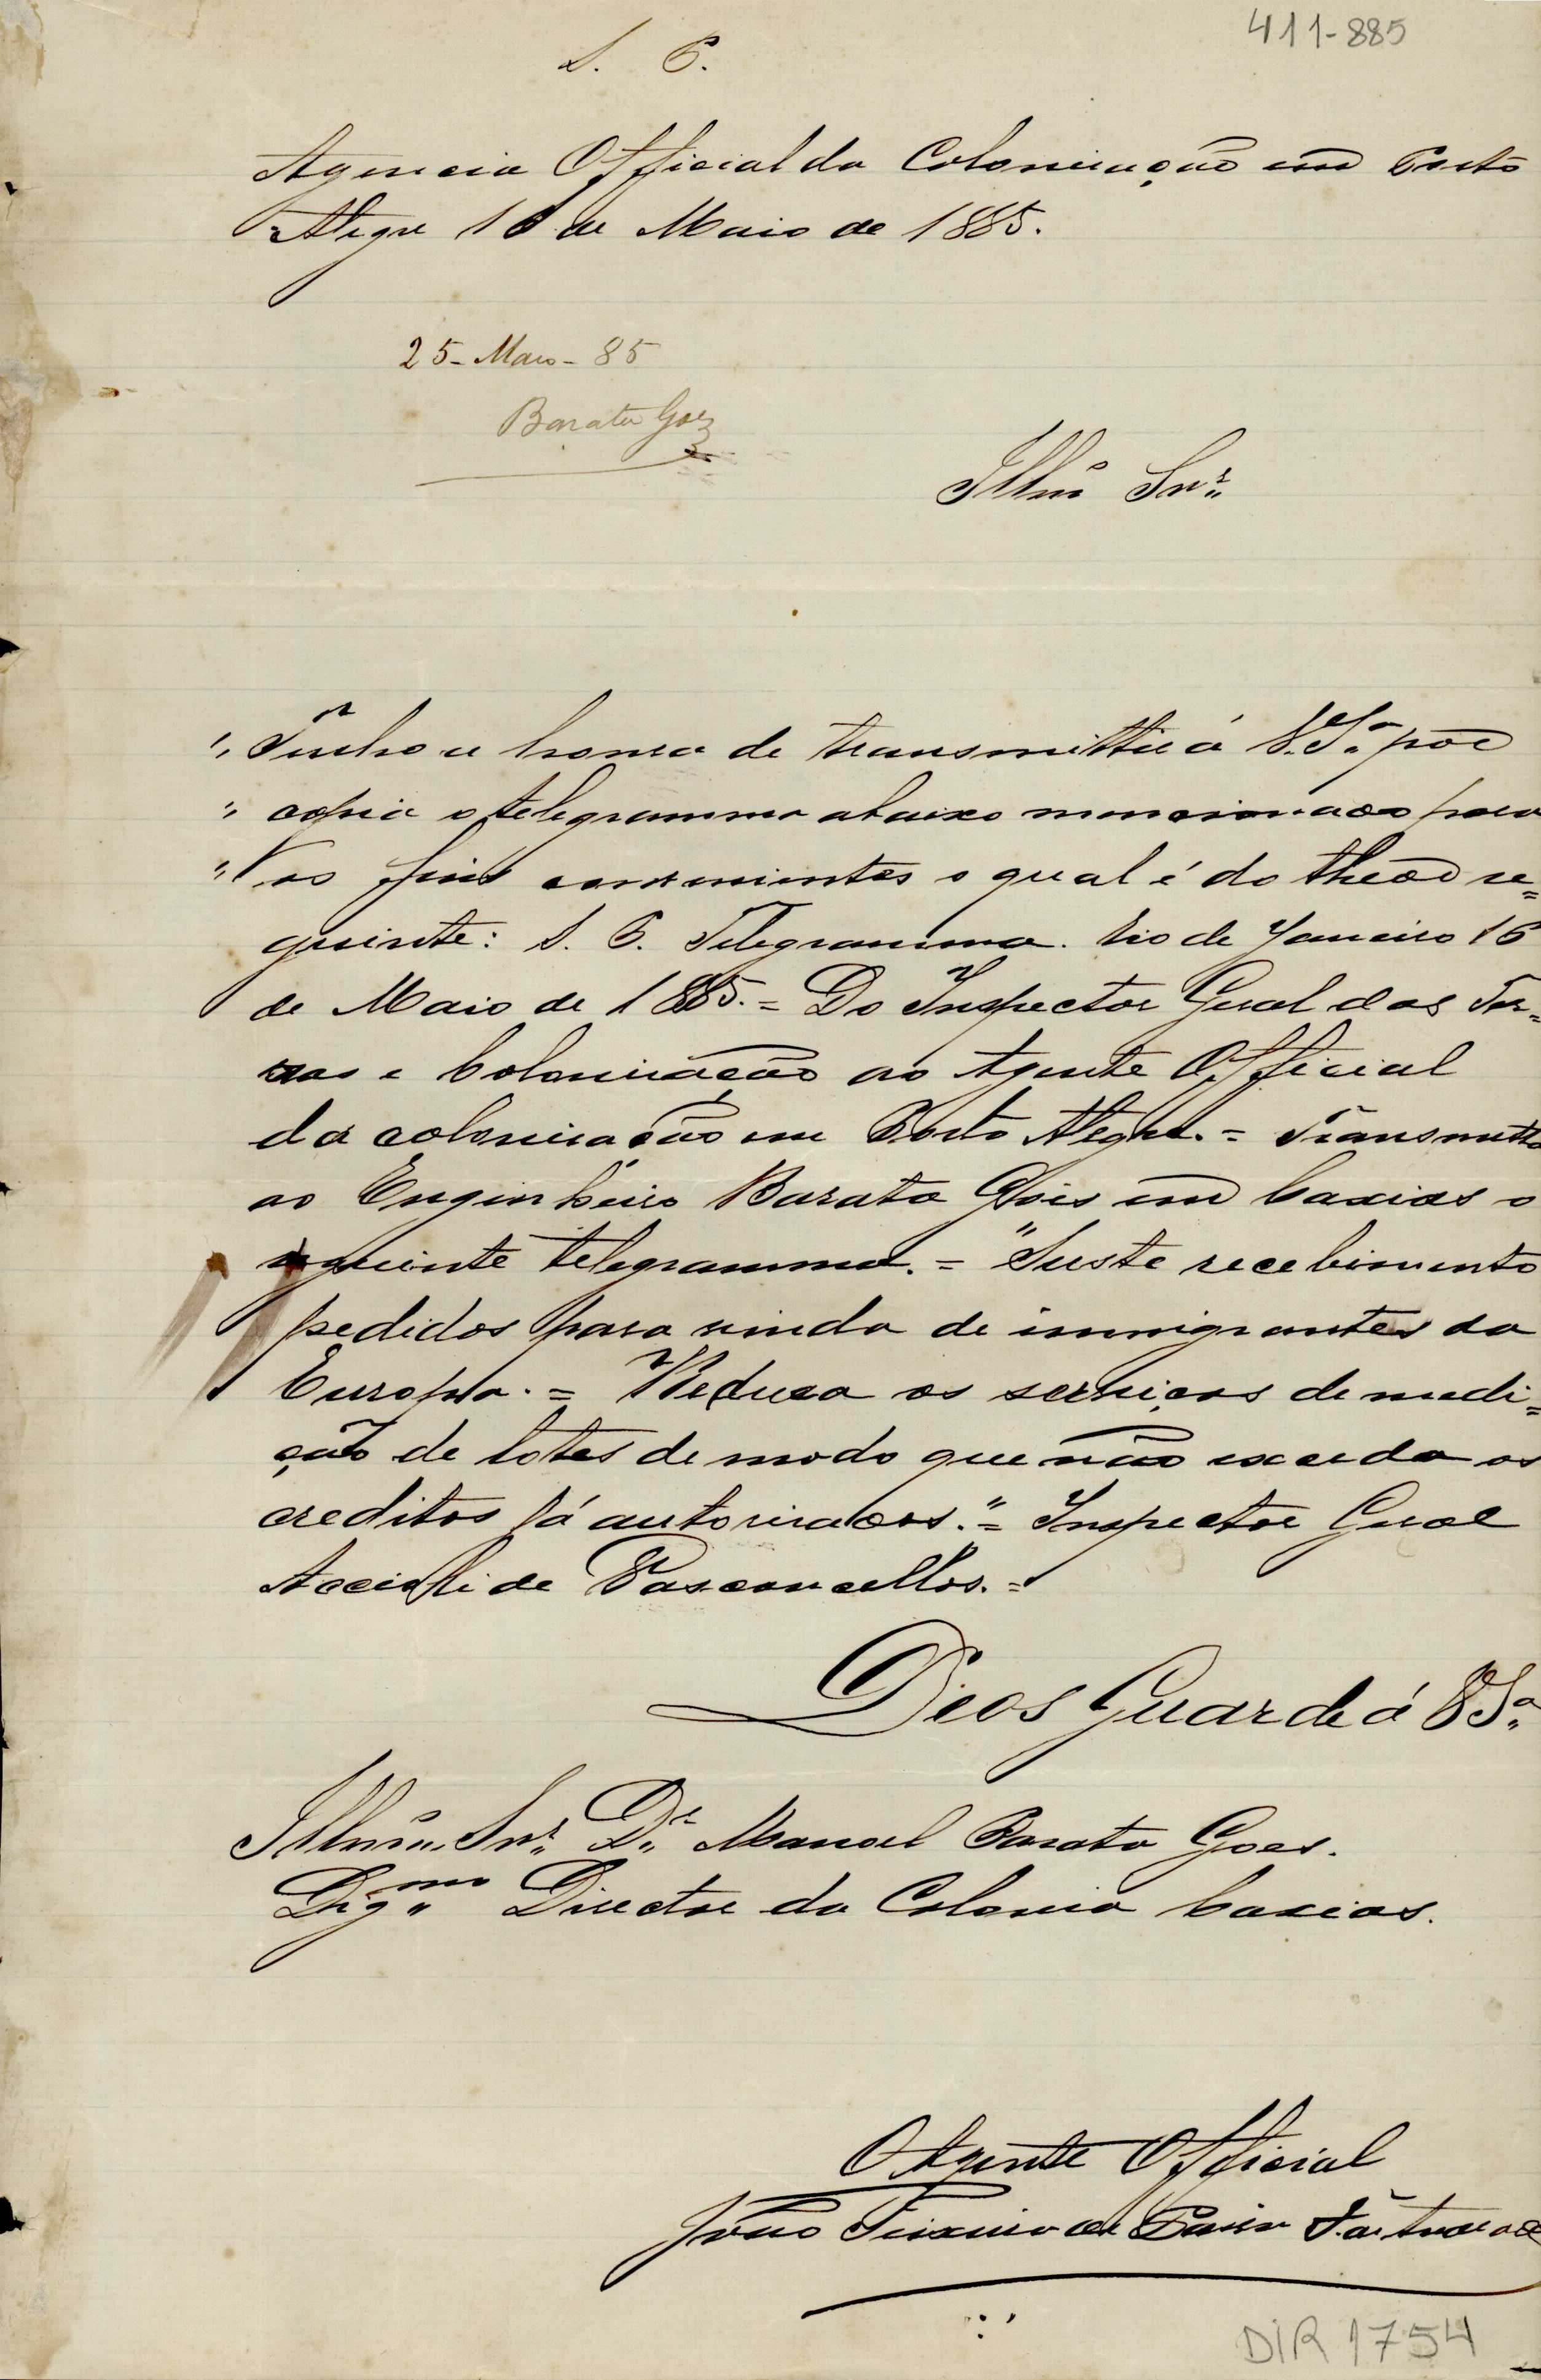 411-885
S. P.
Agencia Official da Colonisação em Porto
Alegre 16 de Maio de 1885.
25-Maio-85
Barata Goes
Illmo Snr.
Tenho a honra de transmittir á V. Sa. por
copia o telegramma abaixo mencionado para
os fins convenientes o qual é do theor se=
guinte: S. P. Telegramma. Rio de Janeiro 16
de Maio de 1885. = Do Inspector Geral das Ter=
ras e Colonisação ao Agente Official
da colonisação em Porto Alegre. = Transmitta
ao Engenheiro Barata Góis em Caxias o
seguinte telegramma. = "Suste recebimento
pedidos para vinda de immigrantes da
Europa. = Reduza os serviços de medi=
ção de lotes de modo que não exceda os
creditos já autorisados." = Inspector Geral
Accioli de Vasconcellos. =
Deos Guarde á V Sa.
Illmo. Snr. Dr. Manoel Barata Goes.
Digmo Director da Colonia Caxias.
O Agente Official
João Teixeira de
DIR 1754